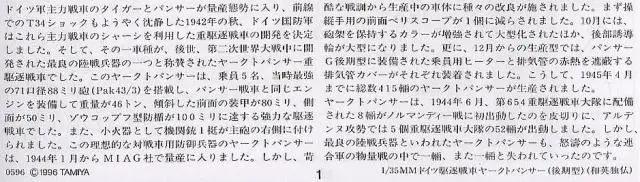 ドイツ軍主力戦車のタイガーとパンサーが量産態勢に入り、前線
でのT34ショックもようやく沈静した1942年の秋、ドイツ国防軍
はこれら主力戦車のシャーシを利用した重駆逐戦車の開発を決定
しました。そして、その一車種が、後世、第二次世界大戦中に開
発された最良の陸戦兵器の一つと称賛されたヤークトパンサー重
駆逐戦車でした。このヤークトパンサーは、乗員5名、当時最強
の71口径88ミリ砲(Pak43/3)を搭載し、パンサー戦車と同じエン
ジンを装備して重量が46トン、傾斜した前面の装甲が80ミリ、側
面が50ミリ、ゾウコップフ型防楯が100ミリに達する強力な駆逐
戦車でした。また、小火器として機関銃1挺が主砲の右側に付け
られました。この理想的な対戦車用防御兵器のヤークトパンサー
は、1944年1月からMIAG社で量産に入りました。しかし、苛
0596 ©1996 TAMIYA
酷な戦訓から生産中の車体に種々の改良が施されました。まず操
縦手用の前面ペリスコープが1個に減らされました。10月には、
砲架を保持するカラーが増強されて大型化されたほか、後部誘導
輪が大型になりました。更に、12月からの生産型では、パンサー
G後期型に装備された乗員用ヒーターと排気管の赤熱を遮蔽する
排気管カバーがそれぞれ装着されました。こうして、1945年4月
までに総数415輛のヤークトパンサーが生産されました。
ヤークトパンサーは、1944年6月、第654重駆逐戦車大隊に配備
された8輛がノルマンディー戦に初出動したのを皮切りに、アルデ
ンヌ攻勢では5個重駆逐戦車大隊の52輛が出動しました。しかし、
最良の陸戦兵器といわれたヤークトパンサーも、怒濤のような連
合軍の物量戦の中で一輛、また一輛と失われていったのです。
1
1/35MMドイツ駆逐戦車ヤークトパンサー(後期型)(和英独仏)